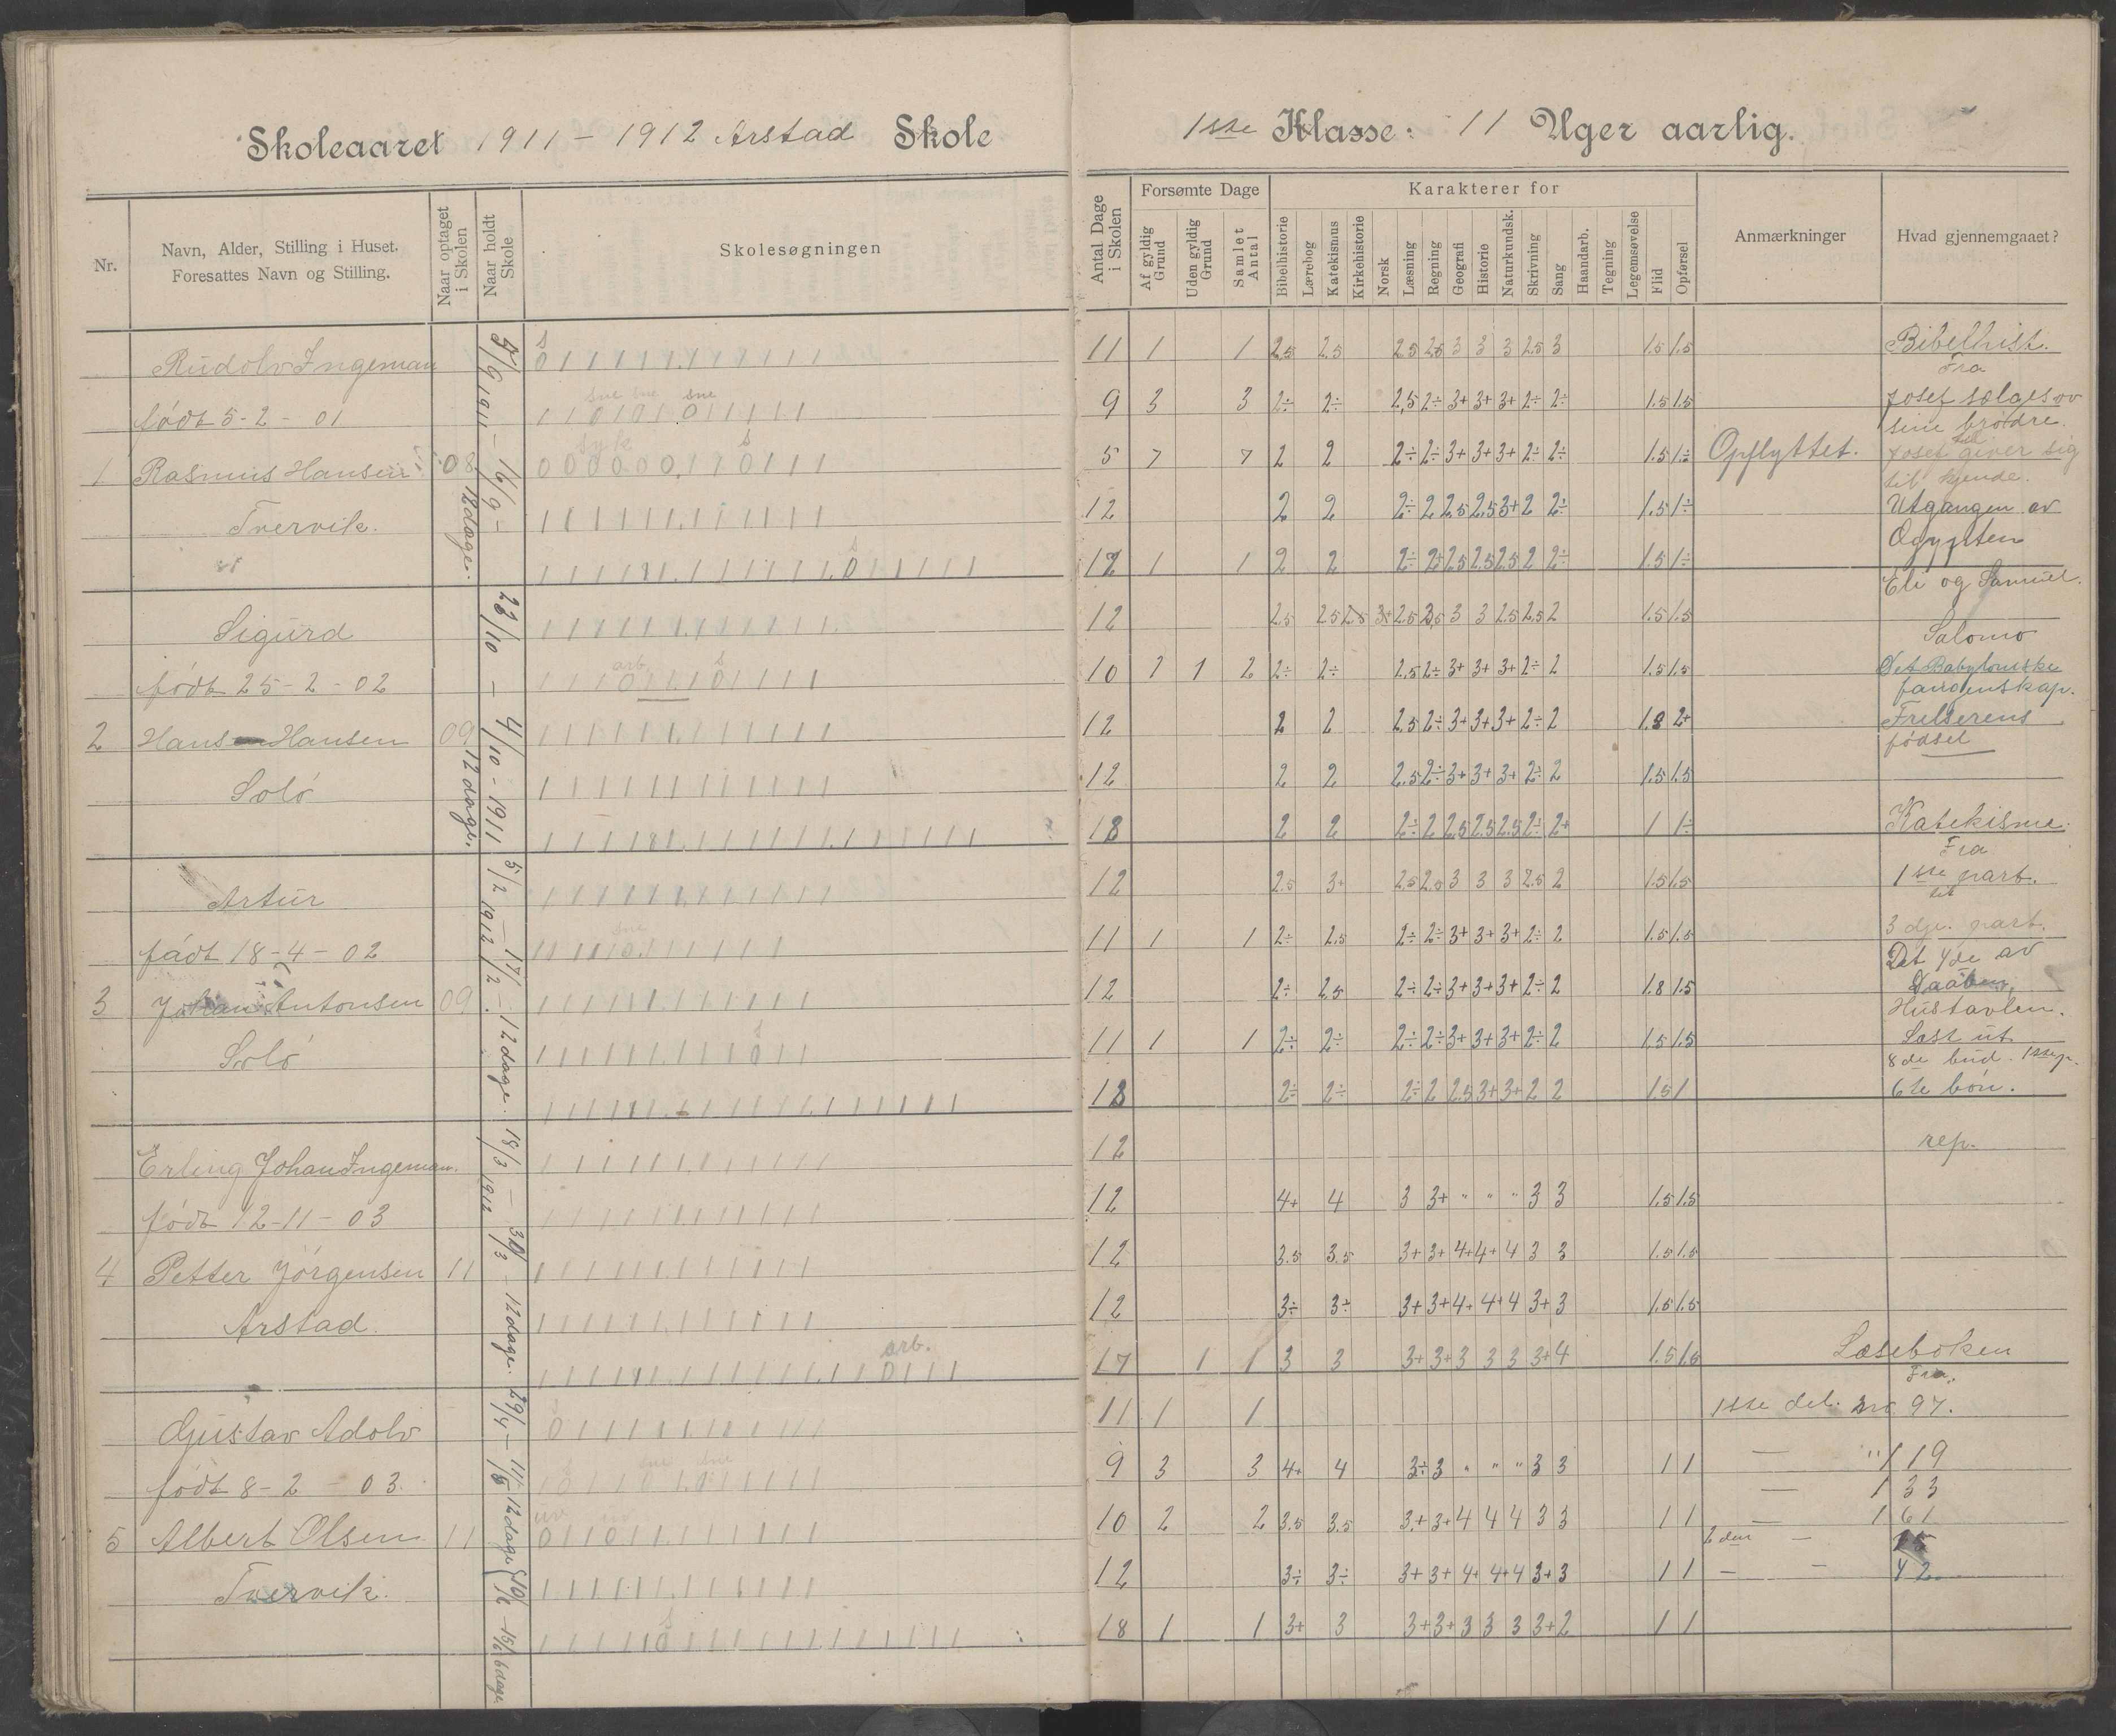 Skoleaaret 1911 - 1912 Arstad Skole
1ste Klasse: 11 Uger aarlig.
Nr.
Navn, Alder, Stilling i Huset.
Foresattes Navn og Stilling.
Naar optaget i Skolen
Naar holdt Skole
Skolesøgningen
Antal Dage i Skolen
Forsømte Dage
Af gyldig Grund
Uden gyldig Grund
Samlet Antal
Karakterer for
Bibelhistorie
Lærebog
Katekismus
Kirkehistorie
Norsk
Læsning
Regning
Geografi
Historie
Naturkundsk.
Skrivning
Sang
Haandarb.
Tegning
Legemsøvelse
Flid
Opførsel
Anmærkninger
Hvad gjennemgaaet?
Rudolv Ingeman
født 5-2-01
1 Rasmus Hansen 08
Tvervik.
Sigurd
født 25-2-02
2 Hans Hansen 09
Solö
Artur
födt 18-4-02
3 Johan Antonsen 09
Solö
Erling Johan Ingeman.
födt 12-11-03
4 Petter Jörgensen 11
Arstad.
Gustav Adolv
födt 8-2-03.
5 Albert Olsen 11
Tvervik.
5/9 1911 - 16/9 - 12 dage.
23/10 - 4/10 - 1911 12 dage.
5/2 1912 - 17/2 - 12 dage.
18/3 1912 - 30/3 - 12 dage.
29/4 - 11/5 12 dage
10/6 - 15/6 6 dage
11 1 1 2.5 2.5 2.5 2.5 3 3 3 2.5 3 1.5 1.5
9 3 3 2÷ 2÷ 2,5 2÷ 3+ 3+ 3+ 2÷ 2÷ 1.5 1.5
5 7 7 2 2 2÷ 2÷ 3+ 3+ 3+ 2÷ 2÷ 1.5 1÷ Opflyttet.
12 2 2 2÷ 2 2.5 2.5 3+ 2 2÷ 1.5 1÷
17 1 1 2 2 2÷ 2+ 2.5 2.5 2.5 2 2÷ 1.5 1÷
12 2.5 2.5 2.5 3+ 2.5 3 3 2.5 2.5 2 1.5 1.5
10 1 1 2 2÷ 2÷ 2.5 2÷ 3+ 3+ 3+ 2÷ 2 1.5 1.5
12 2 2 2.5 2÷ 3+ 3+ 3+ 2÷ 2 1.8 2+
12 2 2 2.5 2÷ 3+ 3+ 3+ 2÷ 2 1.5 1.5
18 2 2 2÷ 2 2.5 2.5 2.5 2÷ 2+ 1 1÷
12 2.5 3+ 2.5 2.5 3 3 3 2.5 2 1.5 1.5
11 1 1 2÷ 2.5 2÷ 2÷ 3+ 3+ 3+ 2÷ 2 1.5 1.5
12 2÷ 2.5 2÷ 2÷ 3+ 3+ 3+ 2÷ 2 1.8 1.5
11 1 1 2÷ 2÷ 2÷ 2÷ 3+ 3+ 3+ 2÷ 2 1.5 1.5
18 2÷ 2÷ 2÷ 2 2.5 3+ 3+ 2 2 1.5 1
12
12 4+ 4 3 3+ " " " 3 3 1.5 1.5
12 3.5 3.5 3+ 3+ 4+ 4+ 4 3 3 1.5 1.5
12 3÷ 3÷ 3+ 3+ 4+ 4+ 4 3+ 3 1.5 1.5
17 1 1 3 3 3+ 3+ 3 3 3 3+ 4 1.5 1.5
11 1 1
9 3 3 4+ 4 3÷ 3 " " " 3 3 1 1
10 2 2 3.5 3.5 3+ 3+ 4 4 4 3 3 1 1
12 3÷ 3÷ 3+ 3+ 4+ 4+ 4 3+ 3 1 1
18 1 1 3+ 3 3+ 3+ 3 3 3 3+ 2 1 1
Bibelhist.
Fra
Josef sælges av
sine brødre.
til
Josef giver sig
til kjende.
Utgangen av
Ægypten
Eli og Samuel.
Salomo
Det Babylonske
fangenskap.
Frelserens
fødsel
Katekisme.
Fra
1ste part.
til
3dje part.
Det 4de av
Daaben.
Hustavlen.
Læst ut
8de bud. 1ste p.
6te bön.
rep.
Læseboken
Fra.
1ste del. nr. 97.
— " 119
— 133
— 161
2den —
— - 42